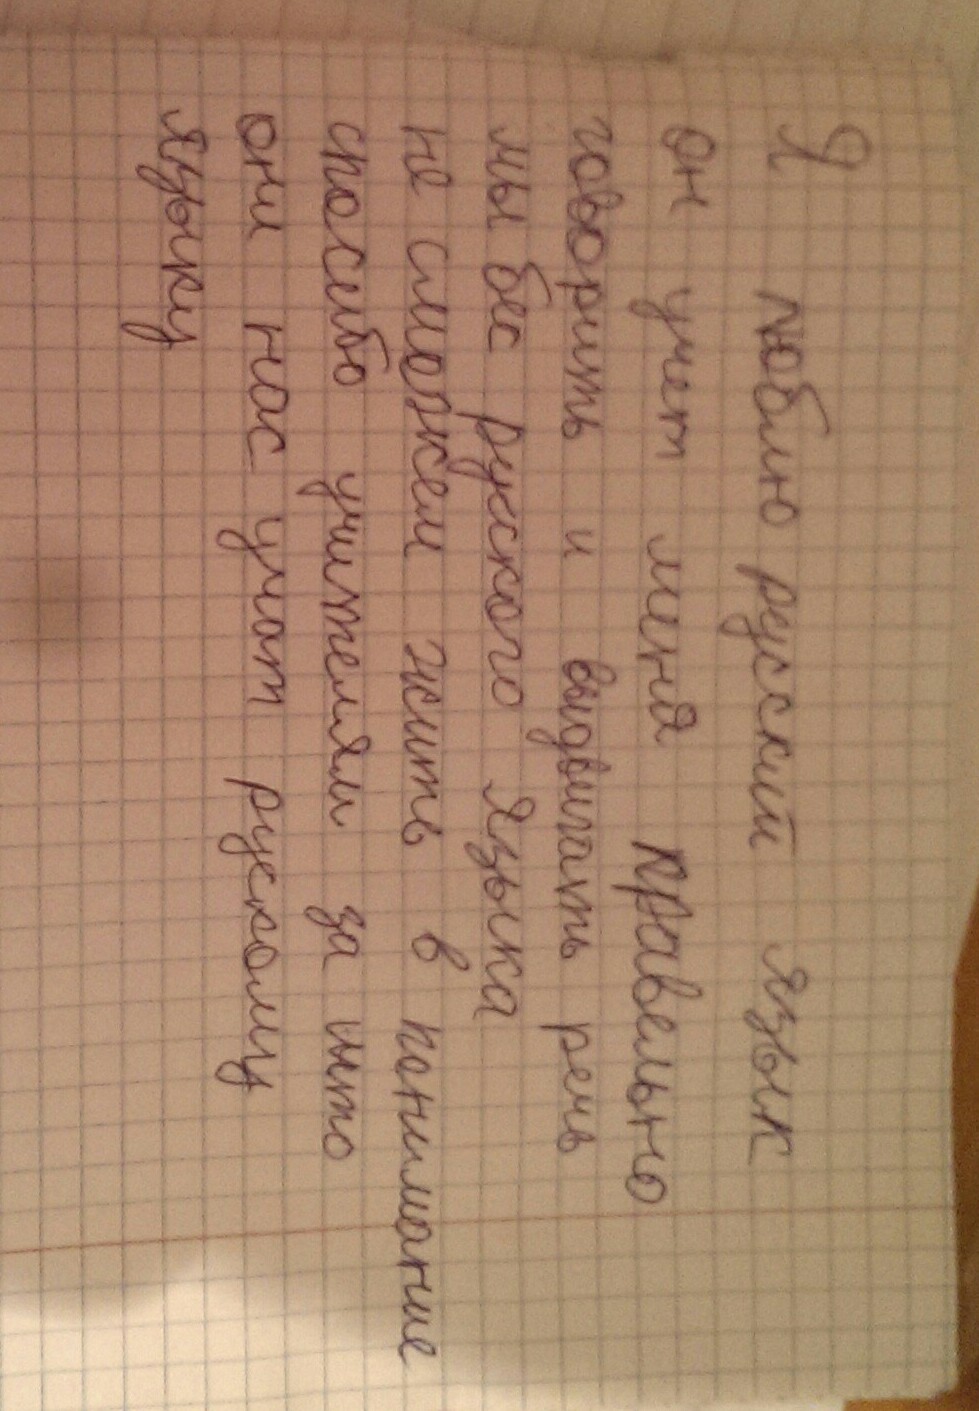 Я люблю русский язык
он учет меня правельно
говорить и выдвигать речь
мы бес руского языка
не сможем жить в понимание
спосибо учителям за што
они нас учат рускому
языку